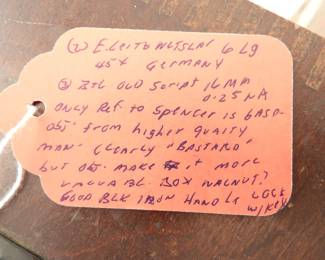 (2) E. Leitz Wetzlar 6 L9
45X Germany
(3) B+L Old Script 16mm
0.25 NA
Only Ref. to Spencer is base-
Obj. from higher quaity
man. clearly "Bastard"
but obj. make it more
valuabl. Box walnut?
Good Blk Iron Handle Lock
w/key